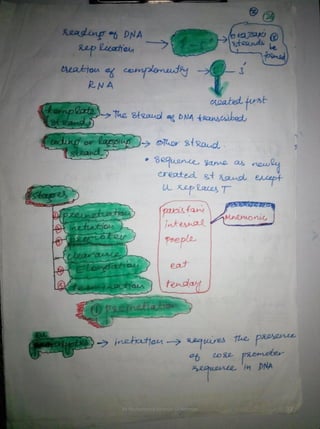 reading of DNA
replication
strands
be
formed
creation of complementry
RNA
3'
created first
template
strand
→ The strand of DNA transcribed
coding or
strand
→ other strand.
• sequence same as newly
created strand except
U replaces T
stages
preinitiation
initiation
promoter
clearance
elongation
termination
pakistani
internal
people
eat
tenday
mnemonic
① preinitiation
→ initiation → requires the presence
of core promoter
sequence in DNA